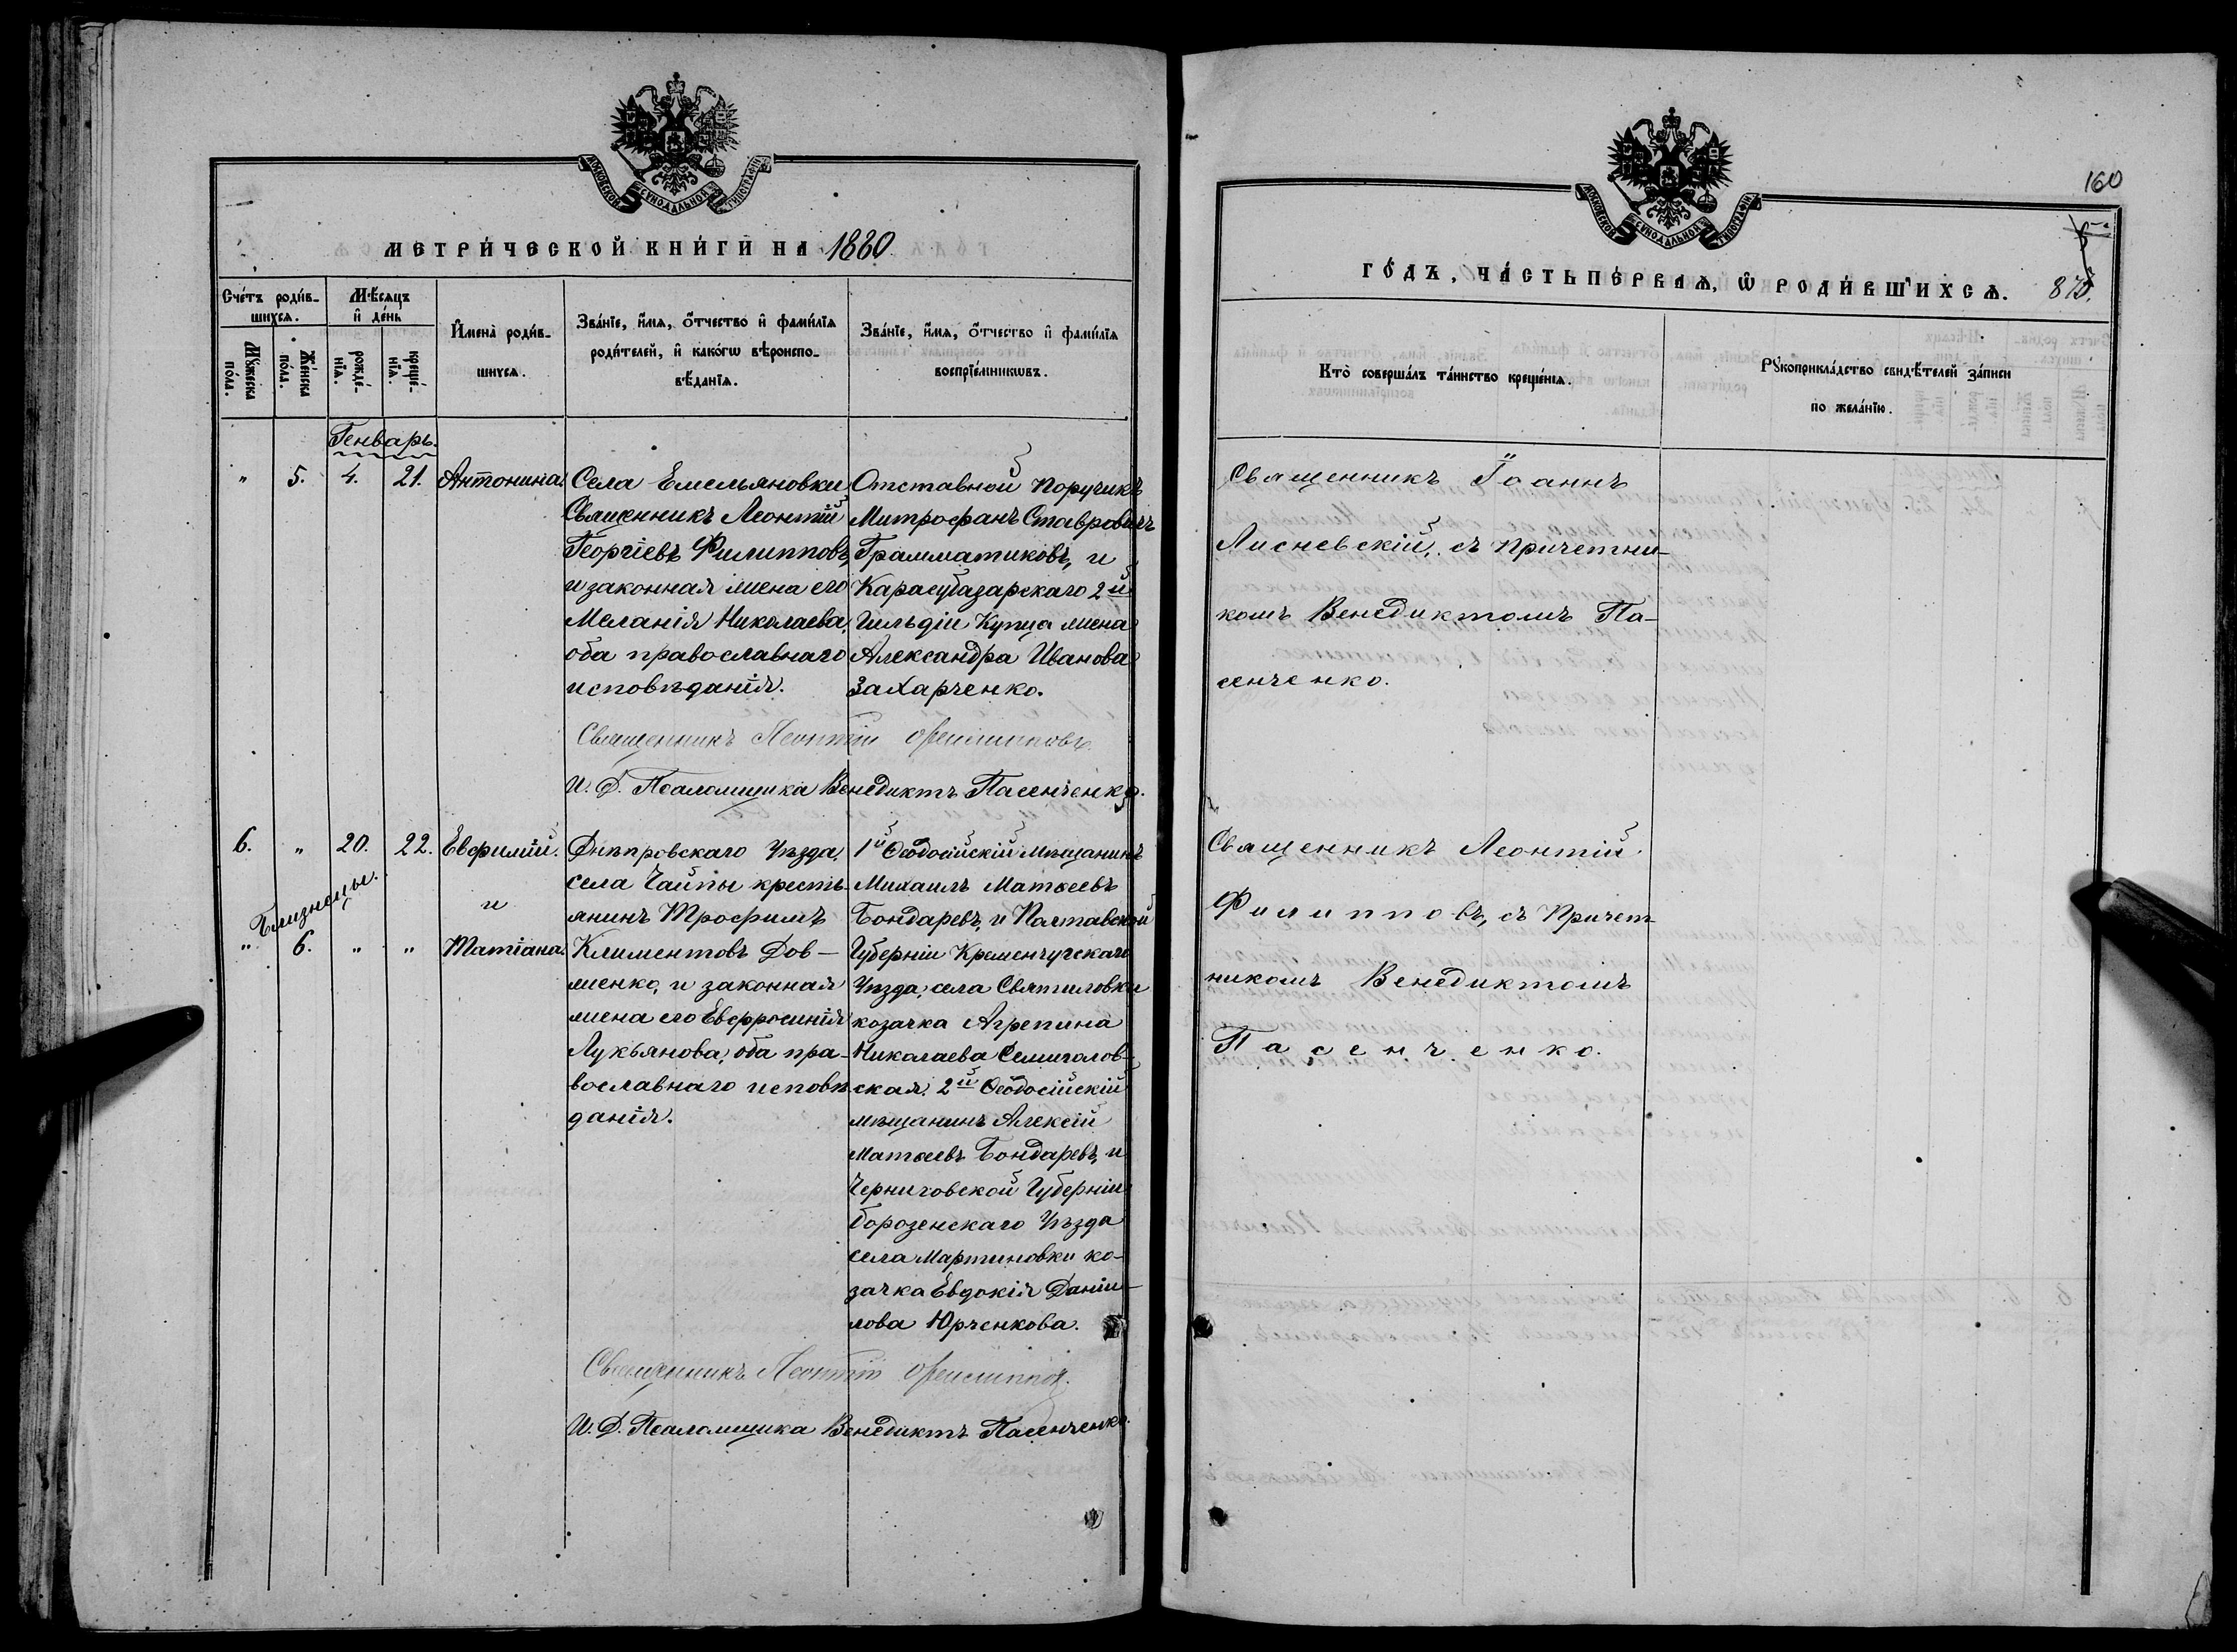 МОСКОВСКОЙ СѴНОДАЛЬНОЙ ТИПОГРАФІИ
МЕТРИ́ЧЕСКОЙ КНИ́ГИ НА 1880
Сче́тъ роди́в-
шихсѧ.
Мꙋ́жеска
пола.
Же́нска
по́ла.
Мѣ́сѧцъ
и҆ де́нь
рожде́-
нїѧ.
креще́-
нїѧ.
И҆мена̀ роди́в-
шихсѧ.
Зва́нїе, и҆́мѧ, ѻ҆́тчество и҆ фами́лїѧ
роди́телей, и҆ како́гѡ вѣроиспо-
вѣ́данїѧ.
Зва́нїе, и҆́мѧ, ѻ҆́тчество и҆ фами́лїѧ
воспрїе́мникѡвъ.
Генварь.
" 5. 4. 21. Антонина.
Села Емельяновки
Священникъ Леонтій
Георгіевъ Филипповъ,
и законная жена его
Меланія Николаева,
оба православнаго
исповѣданія.
Отставной Поручикъ
Митрофанъ Ставровичъ
Грамматиковъ, и
Карасубазарскаго 2й
Гильдіи Купца жена
Александра Иванова
Захарченко.
Священникъ Леонтій Филипповъ.
И. Д. Псаломщика Венедиктъ Пасенченко.
6. " 20. 22. Евфимій.
и
Близнецы.
" 6. " " Татіана.
Днѣпровскаго Уѣзда,
села Чаплы кресть-
янинъ Трофимъ
Климентовъ Дов-
женко, и законная
жена его Евфросинія
Лукьянова, оба пра-
вославнаго исповѣ-
данія.
1й Ѳеодосійскій Мѣщанинъ
Михаилъ Матѳеевъ
Бондаревъ, и Полтавской
Губерніи Кременчугскаго
Уѣзда, села Святиловки
козачка Агрепина
Николаева Семиголов-
ская, 2й Ѳеодосійскій
мѣщанинъ Алексій
Матѳеевъ Бондаревъ, и
Черниговской Губерніи
Борозенскаго Уѣзда
села Мартиновки ко-
зачка Евдокія Даніи-
лова Юрченкова.
Священникъ Леонтій Филиппов.
И. Д. Псаломщика Венедиктъ Пасенченко.
МОСКОВСКОЙ СѴНОДАЛЬНОЙ ТИПОГРАФІИ
160
ГО́ДЪ, ЧА́СТЬ ПЕ́РВАѦ, Ѡ РОДИ́ВШИХСѦ. 875.
Кто̀ соверша́лъ та́инство креще́нїѧ.
Рꙋкоприкла́дство свидѣ́телей за́писи
по жела́нїю.
Священникъ Іоаннъ
Лисневскій, съ причетни-
комъ Венедиктомъ Па-
сенченко.
Священникъ Леонтій
Филипповъ, съ Причет-
никомъ Венедиктомъ
Пасенченко.